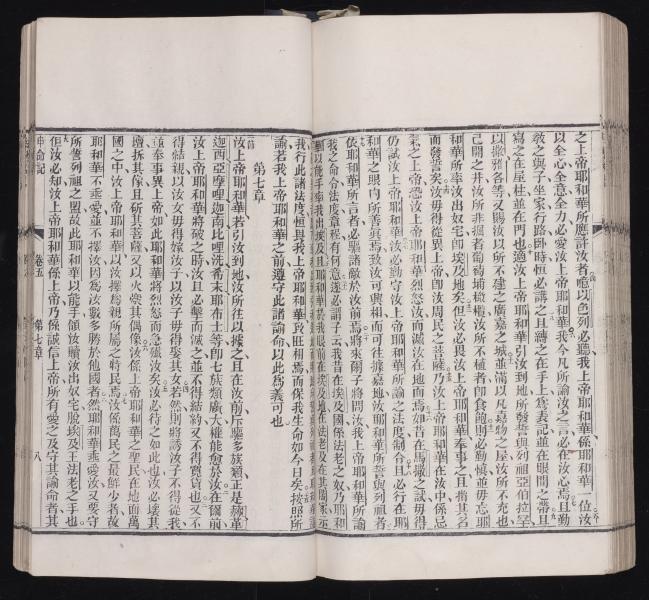 之上帝耶和華所應許汝者噫以色列必聽我上帝耶和華係耶和華一位汝
以全心全意全力必愛汝上帝耶和華我今凡所諭汝之言必在汝心焉且勤
敎之與子坐家行路臥時恒必講之且縛之在手上為表記並在眼間之帶且
寫之在屋柱並在門也適汝上帝耶和華引汝到地所發誓與列祖亞伯拉罕
以撒雅各等又賜汝以所不建之廣嘉之城並滿以凡嘉物之屋汝所不充也
已開之井汝所非掘者葡萄埔橄欖汝所不植者卽食飽則必勤愼並毋忘耶
和華所率汝出奴宅卽埃及地矣但汝必畏汝上帝耶和華奉事之且指其名
而發誓矣汝毋得從異上帝卽汝周民之菩薩乃汝上帝耶和華在汝中係忌
之上帝恐汝上帝耶和華烈怒汝而滅汝在地面焉如昔在馬撒之試毋得
仍試汝上帝耶和華汝必勤守汝上帝耶和華所諭之法度制令且必行在耶
和華之眼內所善眞焉致汝可興相而可往據嘉地汝耶和華所誓與列祖者
依耶和華所言者必驅諸敵於汝前焉將來爾子將問汝我上帝耶和華所諭
我之命令法度章程有何意遂必謂子云我昔在埃及國係法老之奴乃耶和
華以能手率我出埃及且耶和華
我行此諸法度恒畏我上帝耶和華致旺相焉而保我生命如今日矣按照所
諭若我上帝耶和華之前遵守此諸諭命以此爲義可也
第七章
汝上帝耶和華若引汝到地汝所往以據之且在汝前斥驅多族類正是
迦西亞摩哩迦南比哩洗希未耶布士等卽七族類廣大權能愈於汝在爾前
汝上帝耶和華將破之時汝且必擊而滅之並不得結約又不得寬貸也又不
得結親以汝女毋得嫁汝子以汝子毋得娶其女若然則將誘汝子不得從我
並奉事異上帝如此耶和華將烈怒而急殲汝矣汝必待之如此也汝必壞其
壇拆其像且斫其菩薩又以火燬其偶像汝係上帝耶和華之聖民在地面萬
國之中汝上帝耶和華以汝擇爲親所屬之特民焉汝係萬民之最鮮少者故
耶和華不垂愛並不擇汝因爲汝數多勝於他國者然耶和華垂愛汝又要守
所誓列祖之盟故此耶和華以能手領放贖汝出奴宅脫埃及王法老之手也
但汝必知汝上帝耶和華係上帝乃係誠信上帝所有愛之及守其諭命者其
申命記 卷五 第七章 八